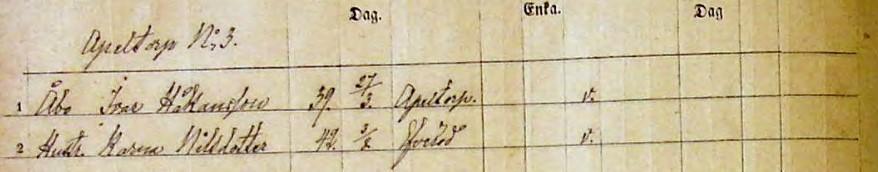 Dag. Enka. Dag
Apeltorp No 3.
1 Åbo Ivar Håkansson 39. 27/3. Apeltorp. v.
2 Hustr. Karna Nilsdotter 42. v.